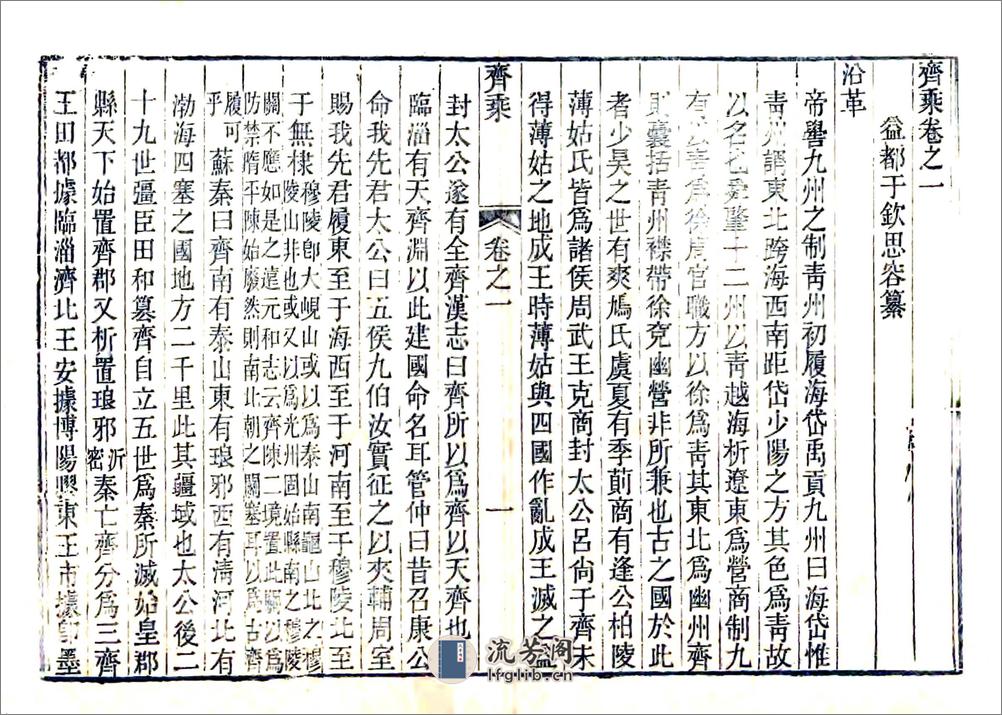 齊乘卷之一
益都于欽思容纂
沿革
帝嚳九州之制靑州初履海岱禹貢九州曰海岱惟
靑州謂東北跨海西南距岱少陽之方其色爲靑故
以名也舜肇十二州以靑越海析遼東爲營商制九
有 靑爲徐周官職方以徐爲靑其東北爲幽州齊
則囊括靑州襟帶徐兗幽營非所兼也古之國於此
者少昊之世有爽鳩氏虞夏有季萴商有逢公柏陵
薄姑氏皆爲諸侯周武王克商封太公呂尙于齊未
得薄姑之地成王時薄姑與四國作亂成王滅之益
齊乘
卷之一
一
封太公遂有全齊漢志曰齊所以爲齊以天齊也
臨淄有天齊淵以此建國命名耳管仲曰昔召康公
命我先君太公曰五侯九伯汝實征之以夾輔周室
賜我先君履東至于海西至于河南至于穆陵北至
于無棣穆陵卽大峴山或以爲泰山南龜山北之穆
陵山非也或又以爲光州固始縣南之穆陵
關不應如是之遠元和志云齊陳二境置此關以爲
防禁隋平陳始廢然則南北朝之關塞耳以爲古齊
履可
乎
蘇秦曰齊南有泰山東有琅邪西有淸河北有
渤海四塞之國地方二千里此其疆域也太公後二
十九世彊臣田和篡齊自立五世爲秦所滅始皇郡
縣天下始置齊郡又析置琅邪沂
密秦亡齊分爲三齊
王田都據臨淄濟北王安據博陽膠東王市據卽墨
流芳阁
lfglib.cn